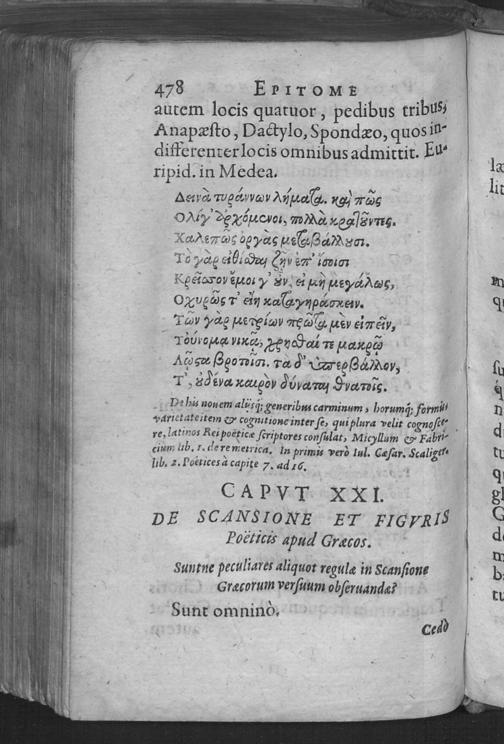 478 EPITOME
autem locis quatuor, pedibus tribus,
Anapæsto, Dactylo, Spondæo, quos in-
differenter locis omnibus admittit. Eu-
ripid. in Medea.
Δεινὰ τυράννων λήματα. καὶ πῶς
Ολίγ' ἀρχόμενοι, πολλὰ κρατοῦντες.
Χαλεπῶς ὀργὰς μεταβάλλουσι.
Τὸ γὰρ εἰθίσθαι ζῆν ἐπ' ἴσοισι
Κρεῖσσον ἔμοι γ' οὖν, εἰ μὴ μεγάλως,
Οχυρῶς τ' εἴη καταγηράσκειν.
Τῶν γὰρ μετρίων πρῶτα μὲν εἰπεῖν,
Τοὔνομα νικᾶ, χρῆσθαί τε μακρῷ
Λῷστα βροτοῖσι. τὰ δ' ὑπερβάλλον,
Τ', οὐδένα καιρὸν δύναται θνατοῖς.
De his nouem alijsq; generibus carminum, horumq; formis
varietate item & cognitione inter se, qui plura velit cognosce-
re, latinos Rei poëticæ scriptores consulat, Micyllum & Fabri-
cium lib. 1. de re metrica. In primis verò Iul. Cæsar. Scaliger.
lib. 2. Poëtices à capite 7. ad 16.
CAPVT XXI.
DE SCANSIONE ET FIGVRIS
Poëticis apud Græcos.
Suntne peculiares aliquot regulæ in Scansione
Græcorum versuum obseruandæ?
Sunt omninò.
Cedò